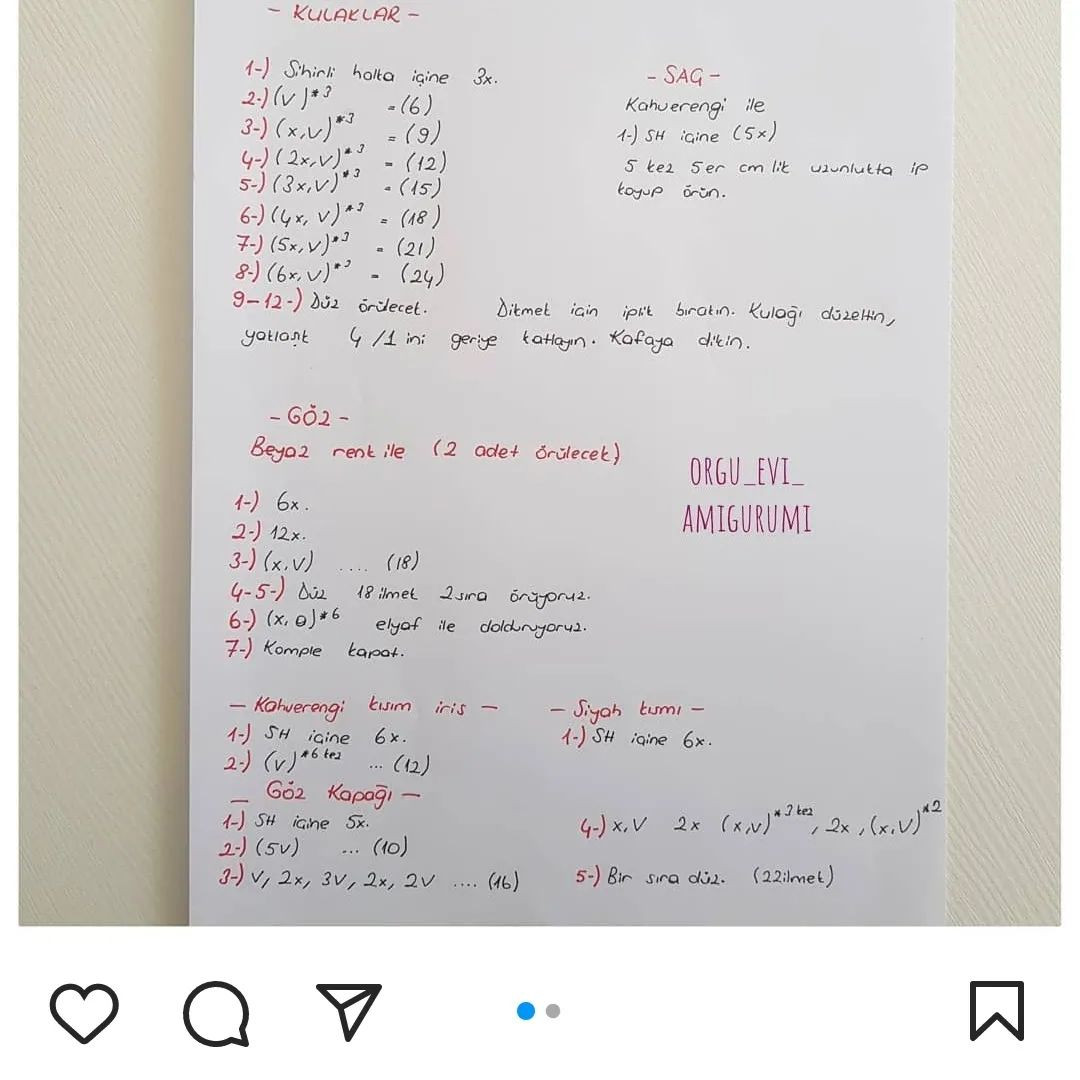 - KULAKLAR -
1-) Sihirli halka içine 3x.
2-) (v)*3 = (6)
3-) (x,v)*3 = (9)
4-) (2x,v)*3 = (12)
5-) (3x,v)*3 = (15)
6-) (4x, v)*3 = (18)
7-) (5x,v)*3 = (21)
8-) (6x,v)*3 = (24)
9-12-) Düz örülecek. Dikmek için iplik bırakın. Kulağı düzeltin,
yaklaşık 4/1 ini geriye katlayın. Kafaya dikin.
- SAG -
Kahverengi ile
1-) SH içine (5x)
5 kez 5er cm lik uzunlukta ip
koyup örün.
- GÖZ -
Beyaz renk ile (2 adet örülecek)
ORGU_EVI_
AMIGURUMI
1-) 6x.
2-) 12x.
3-) (x,v) .... (18)
4-5-) Düz 18 ilmek 2 sıra örüyoruz.
6-) (x, ө)*6 elyaf ile dolduruyoruz.
7-) Komple kapat.
- Kahverengi kısım iris -
1-) SH içine 6x.
2-) (v)*6 kez ... (12)
- Siyah kısmı -
1-) SH içine 6x.
_ Göz Kapağı -
1-) SH içine 5x.
2-) (5v) ... (10)
3-) V, 2x, 3V, 2x, 2V .... (16)
4-) x,V 2x (x,v)*3 kez, 2x, (x,v)*2
5-) Bir sıra düz. (22ilmek)